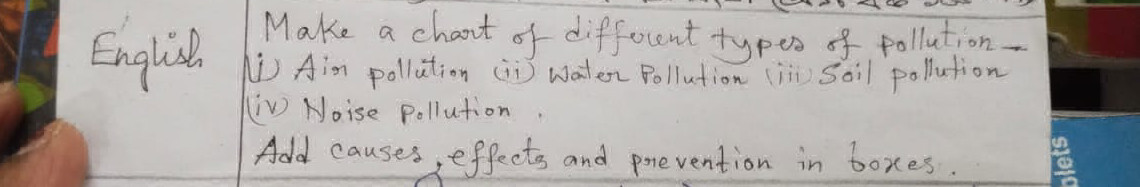 English
Make a chart of different types of pollution -
(i) Air pollution (ii) Water Pollution (iii) Soil pollution
(iv) Noise Pollution.
Add causes, effects and prevention in boxes.
plets